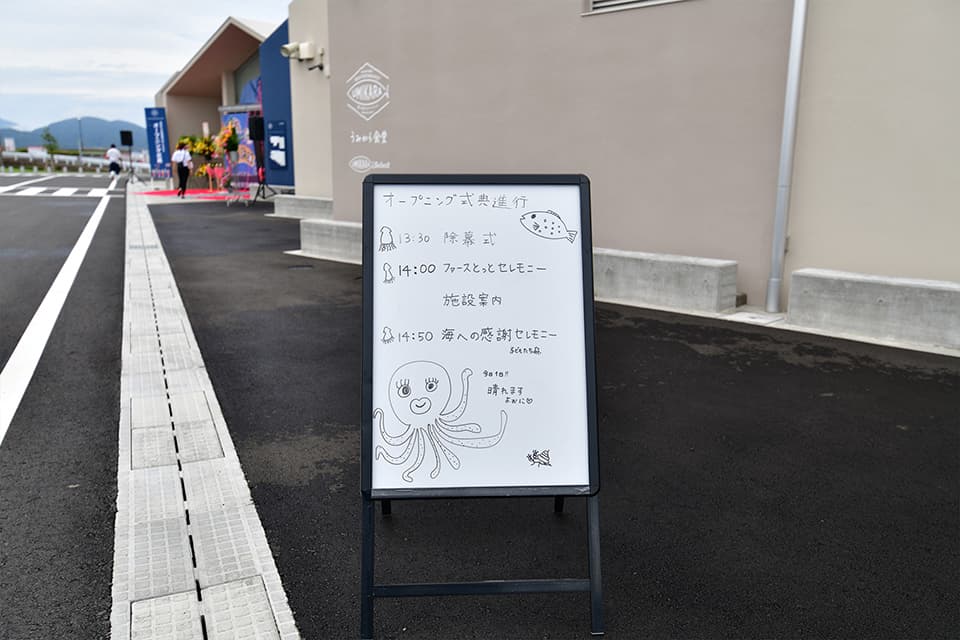 オープニング式典進行
13:30 除幕式
14:00 ファーストセレモニー
施設案内
14:50 海への感謝セレモニー
今日1日!!
晴れます
ように♡
UMIKARA
うみから食堂
UMIKARA Select